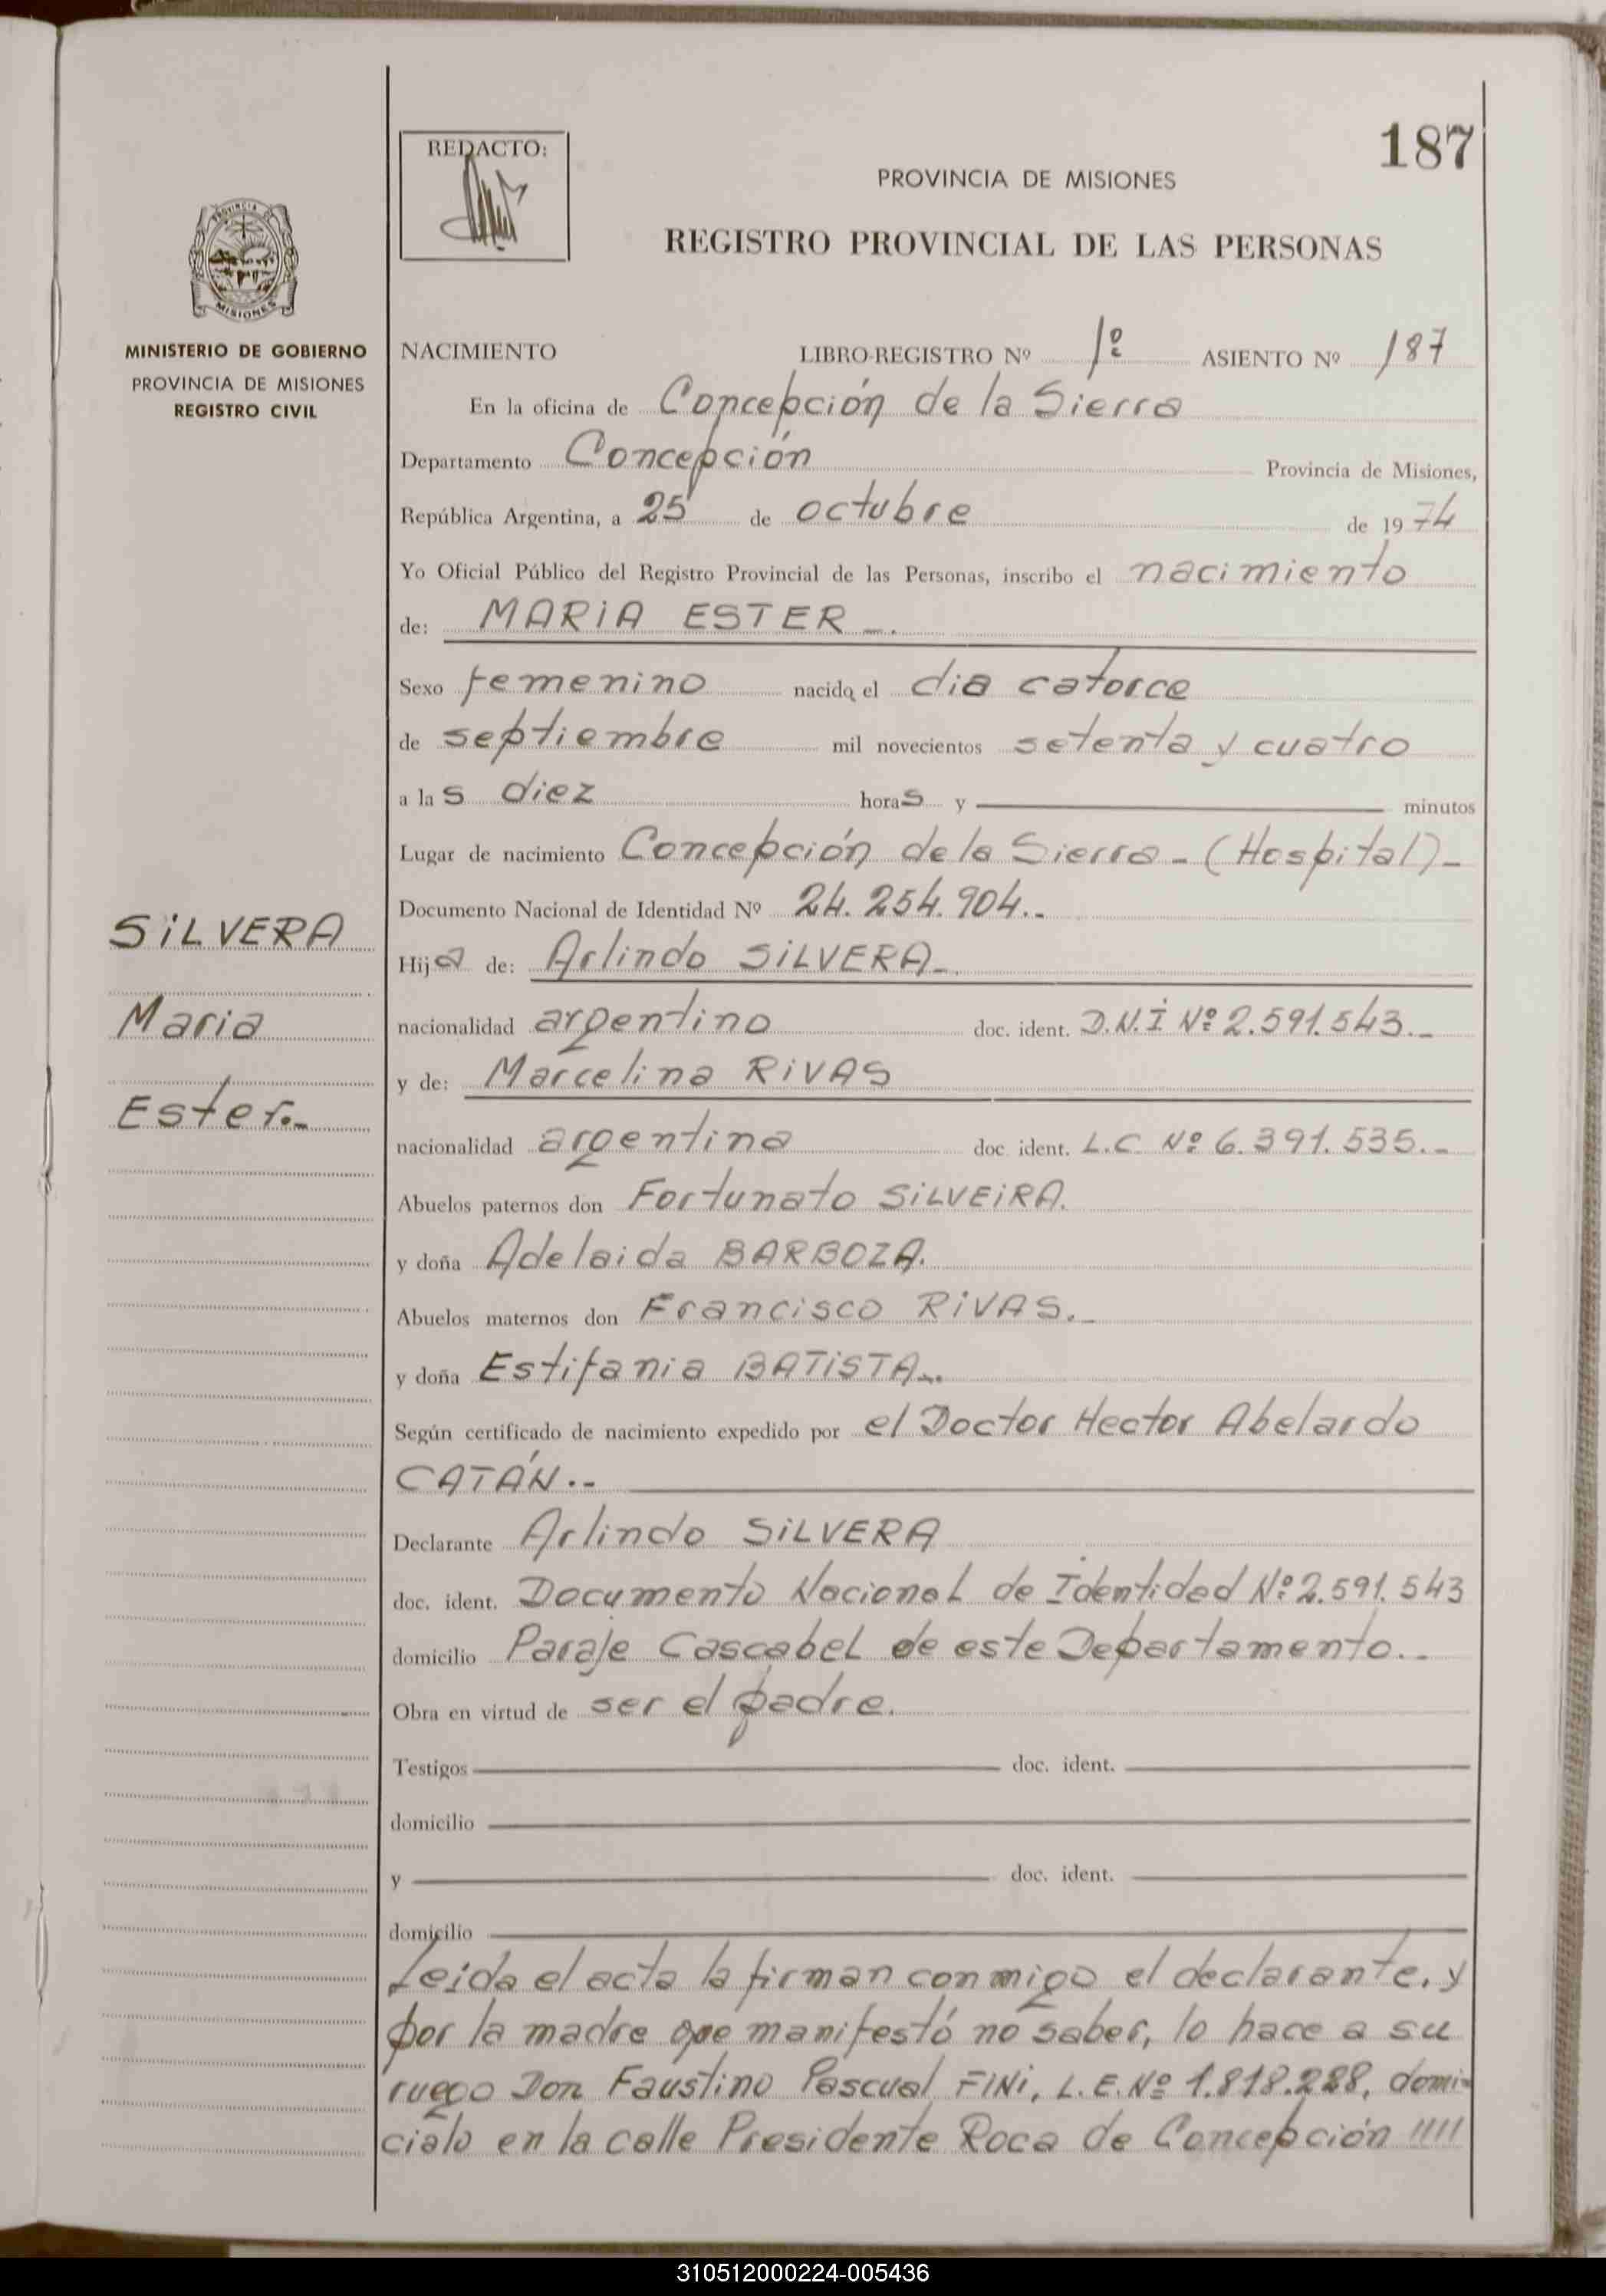 187
REDACTO:
PROVINCIA DE MISIONES
REGISTRO PROVINCIAL DE LAS PERSONAS
PROVINCIA DE
MISIONES
MINISTERIO DE GOBIERNO
PROVINCIA DE MISIONES
REGISTRO CIVIL
NACIMIENTO LIBRO-REGISTRO Nº 1º ASIENTO Nº 187
En la oficina de Concepción de la Sierra
Departamento Concepción Provincia de Misiones,
República Argentina, a 25 de octubre de 1974
Yo Oficial Público del Registro Provincial de las Personas, inscribo el nacimiento
de: MARIA ESTER _.
Sexo femenino nacido el dia catorce
de septiembre mil novecientos setenta y cuatro
a las diez horas y minutos
Lugar de nacimiento Concepción de la Sierra - (Hospital)-
Documento Nacional de Identidad Nº 24.254.904.-
SILVERA
Maria
Ester.-
Hija de: Arlindo SILVERA-.
nacionalidad argentino doc. ident. D.N.I Nº 2.591.543.-
y de: Marcelina RIVAS
nacionalidad argentina doc ident. L.C. Nº 6.391.535.-
Abuelos paternos don Fortunato SILVEIRA.
y doña Adelaida BARBOZA.
Abuelos maternos don Francisco RIVAS.-
y doña Estifania BATISTA-.
Según certificado de nacimiento expedido por el Doctor Hector Abelardo
CATÁN.-
Declarante Arlindo SILVERA
doc. ident. Documento Nacional de Identidad Nº 2.591.543
domicilio Paraje Cascabel de este Departamento.-
Obra en virtud de ser el padre.
Testigos doc. ident.
domicilio
y doc. ident.
domicilio
Leida el acta la firman conmigo el declarante, y
por la madre que manifestó no saber, lo hace a su
ruego Don Faustino Pascual FINI, L.E. Nº 1.818.228, domi-
cialo en la calle Presidente Roca de Concepción
310512000224-005436